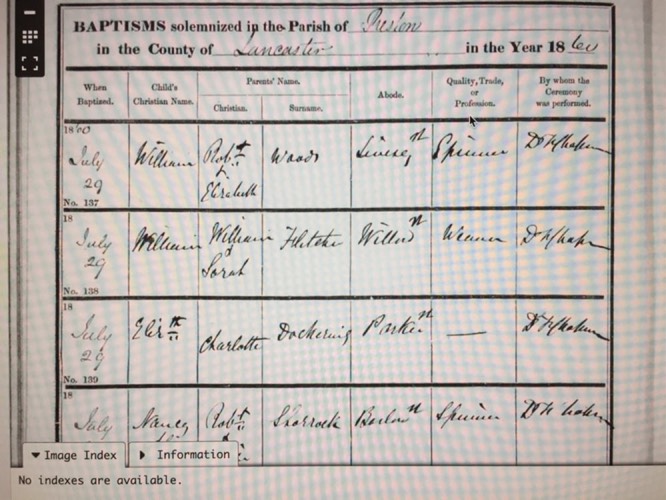 BAPTISMS solemnized in the Parish of Preston
in the County of Lancaster in the Year 18
When Baptized. Child's Christian Name. Parents' Name. Christian. Surname. Abode. Quality, Trade, or Profession. By whom the Ceremony was performed.
1860
July William Robt Woods St Spinner
29 & Elizabeth
No. 137
18
July William William Fletcher St
29 & Sarah
No. 138
18
July Elizth Charlotte Parker St —
29
No. 139
18
July Nancy Robt Shorrock Barlow St Spinner
▼ Image Index ▶ Information
No indexes are available.